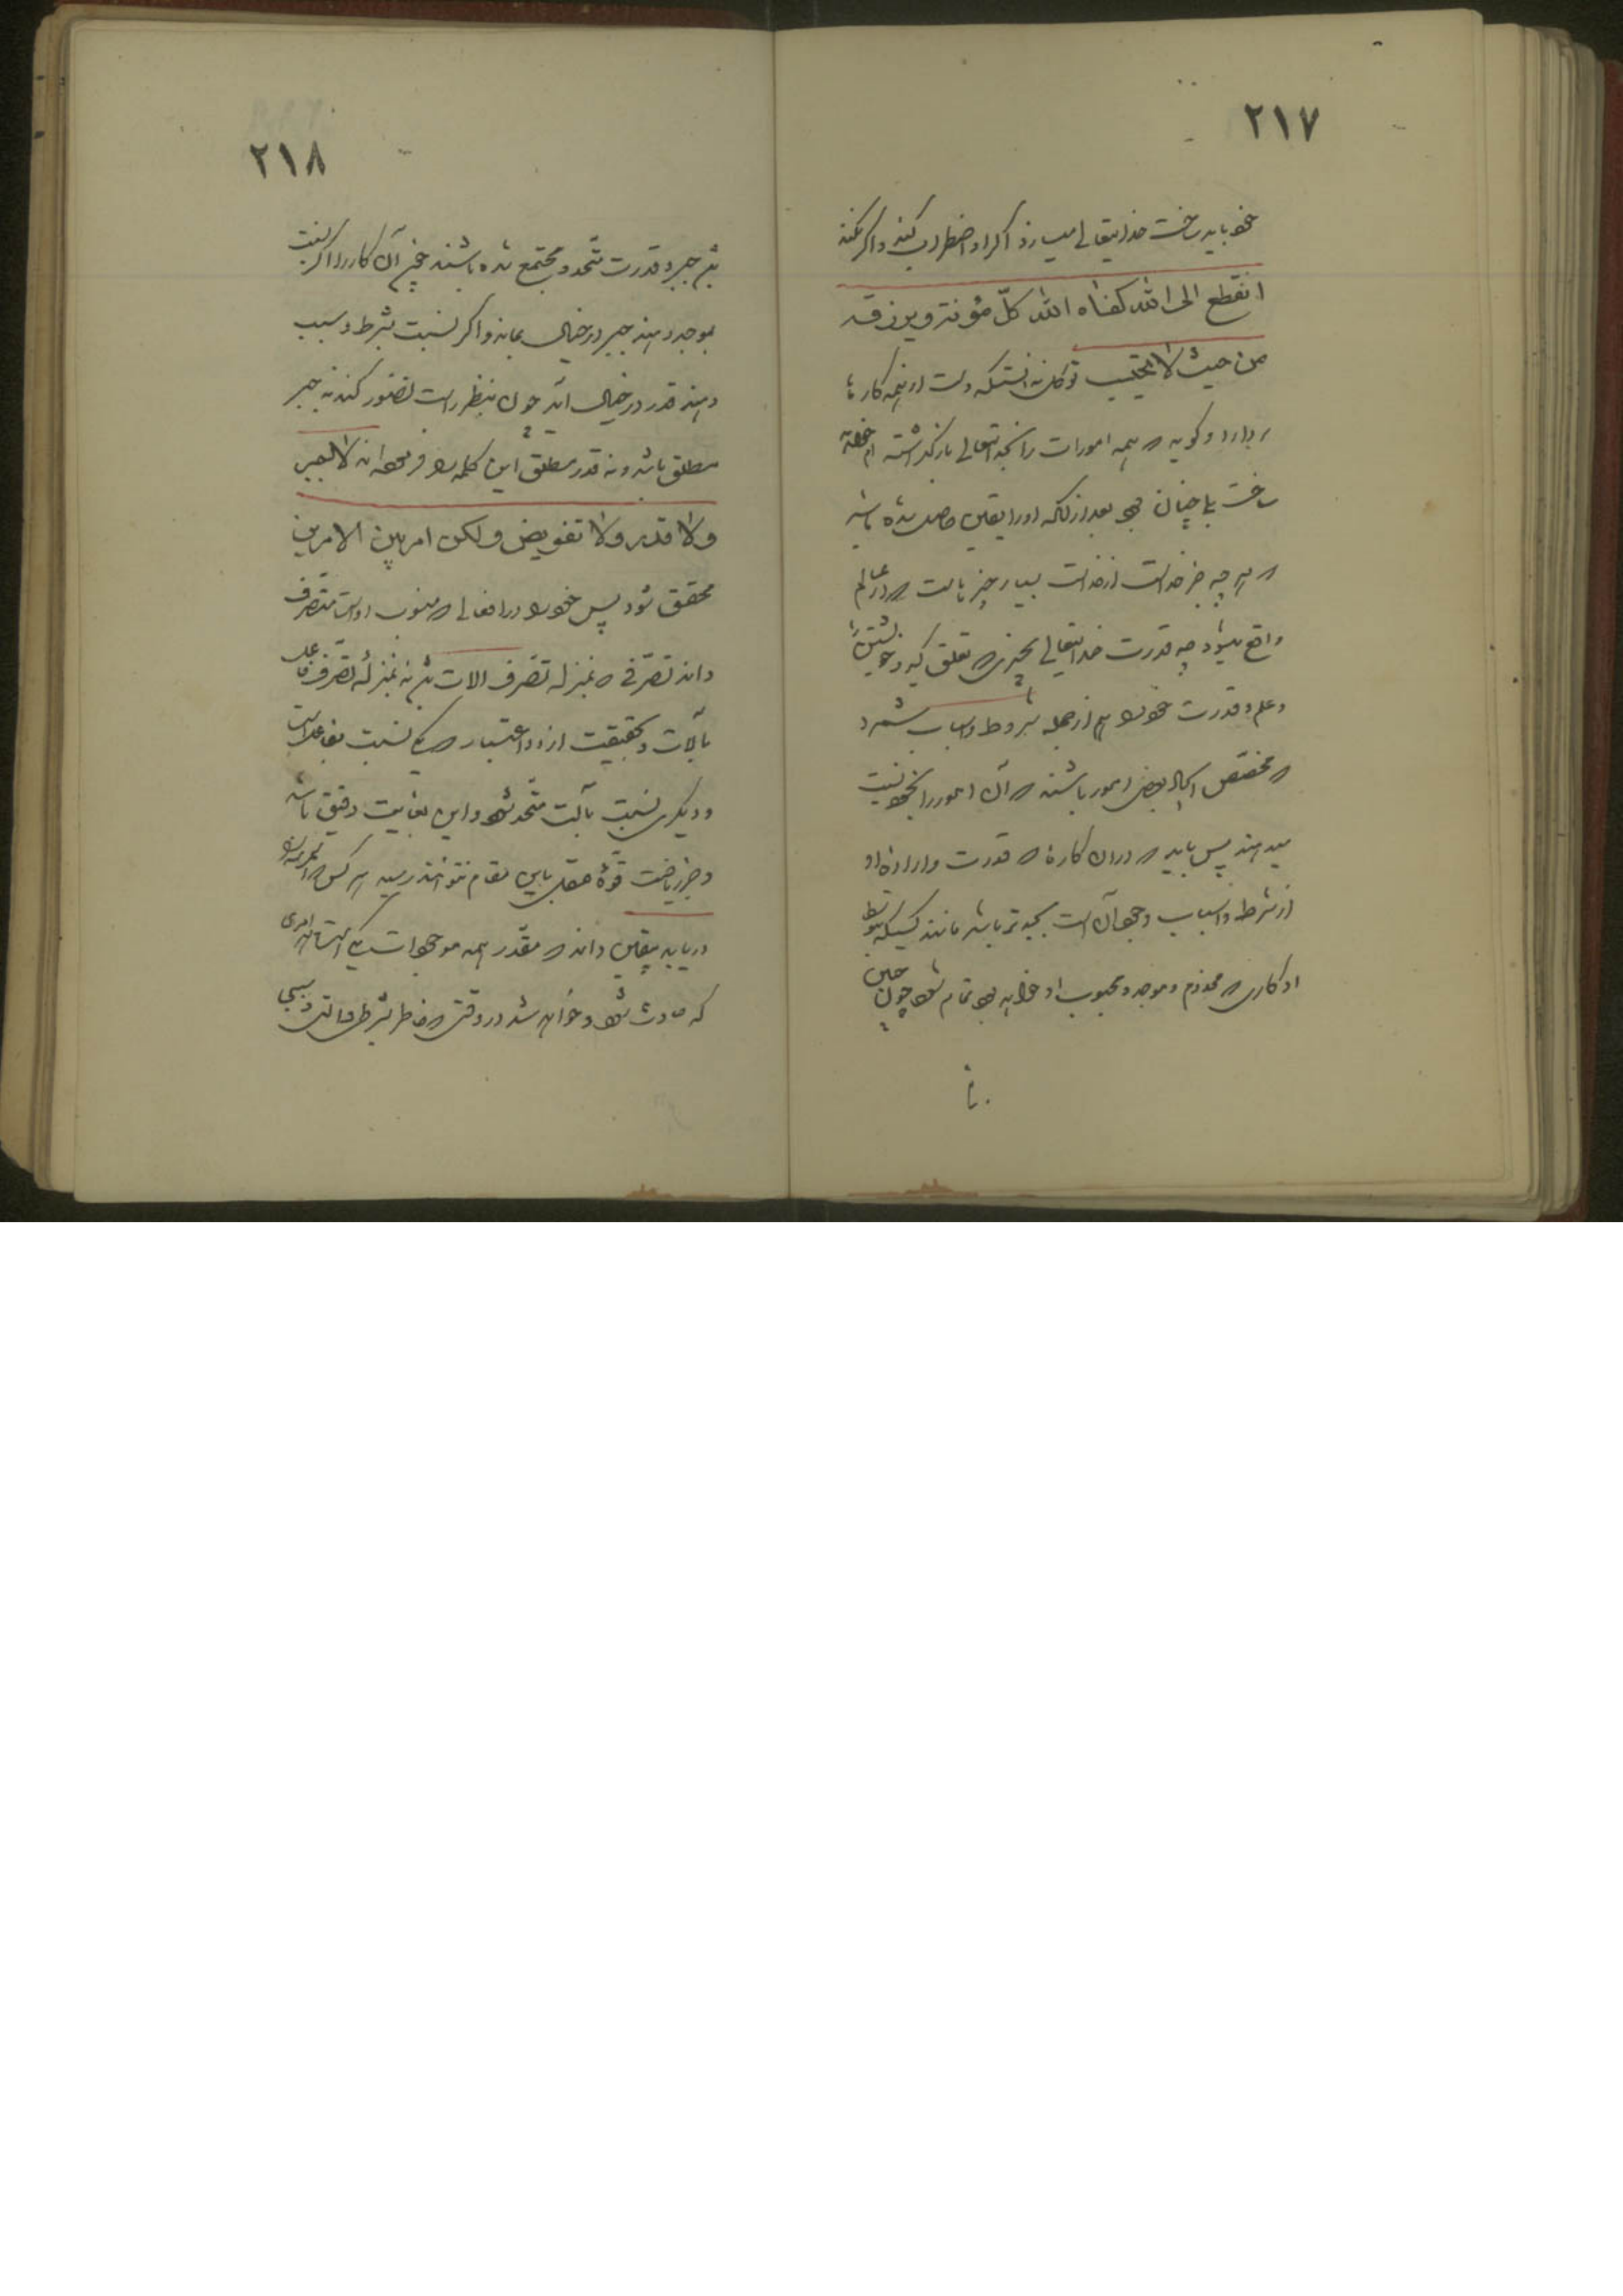 ٢١٧
خود باید ساخت خدایتعالی میسازد اگر او اضطراب کند و اگر نکند
انقطع الی الله کفاه الله کلّ مؤنته ویرزقه
من حیث لا یحتسب توکل نه آنستکه دست از همه کارها
بردارد و گوید که همه امورات را بخدایتعالی بازگذاشته ام
ساخت باید چنان بود بعد از آنکه او را یقین حاصل شده باشد
که هر چه جز خداست از خداست بسیار چیزهاست که در عالم
واقع میشود چه قدرت خدایتعالی بچیزی که تعلق گیرد خویشتن را
و علم و قدرت خود را هم از جمله شروط و اسباب شمرد
که مخصّص ایجاد بعضی امور باشند که آن امور را بخود نسبت
میدهند پس باید که در آن کارها که قدرت و اراده او
از شرط و اسباب وجود آن است بجدتر باشد مانند کسیکه بتوسط
او کاری که مخدوم و موجد و محبوب او خواهد بود تمام شود چون چنین
با
٢١٨
باشد جبر و قدرت متّحد و مجتمع شده باشند چه آن کار را اگر نسبت
بموجد دهند جبر در خیال بماند و اگر نسبت بشرط و سبب
دهند قدر در خیال آید چون بنظر راست تصور کنند نه جبر
مطلق باشد و نه قدر مطلق این کلمه را که فرموده اند لا جبر
ولا قدر ولا تفویض ولکن امر بین الامرین
محقق شود پس خود را در افعالی که منسوب باوست متصرف
داند تصرّفی که بمنزله تصّرف آلات باشد نه بمنزله تصّرف فاعل
بآلات و بحقیقت آن دو اعتبار که یکی نسبت بفاعل است
و دیگری نسبت بآلت متّحد شود و این بغایت دقیق باشد
و جز بریاضت قوّهٔ عقل باین مقام نتوانند رسید هر کس که
دریابد بیقین داند که مقدّر همه موجودات یکی است
که حادث شود و خواهد شد در وقتی که خاص بشرطی و آلتی و سببی